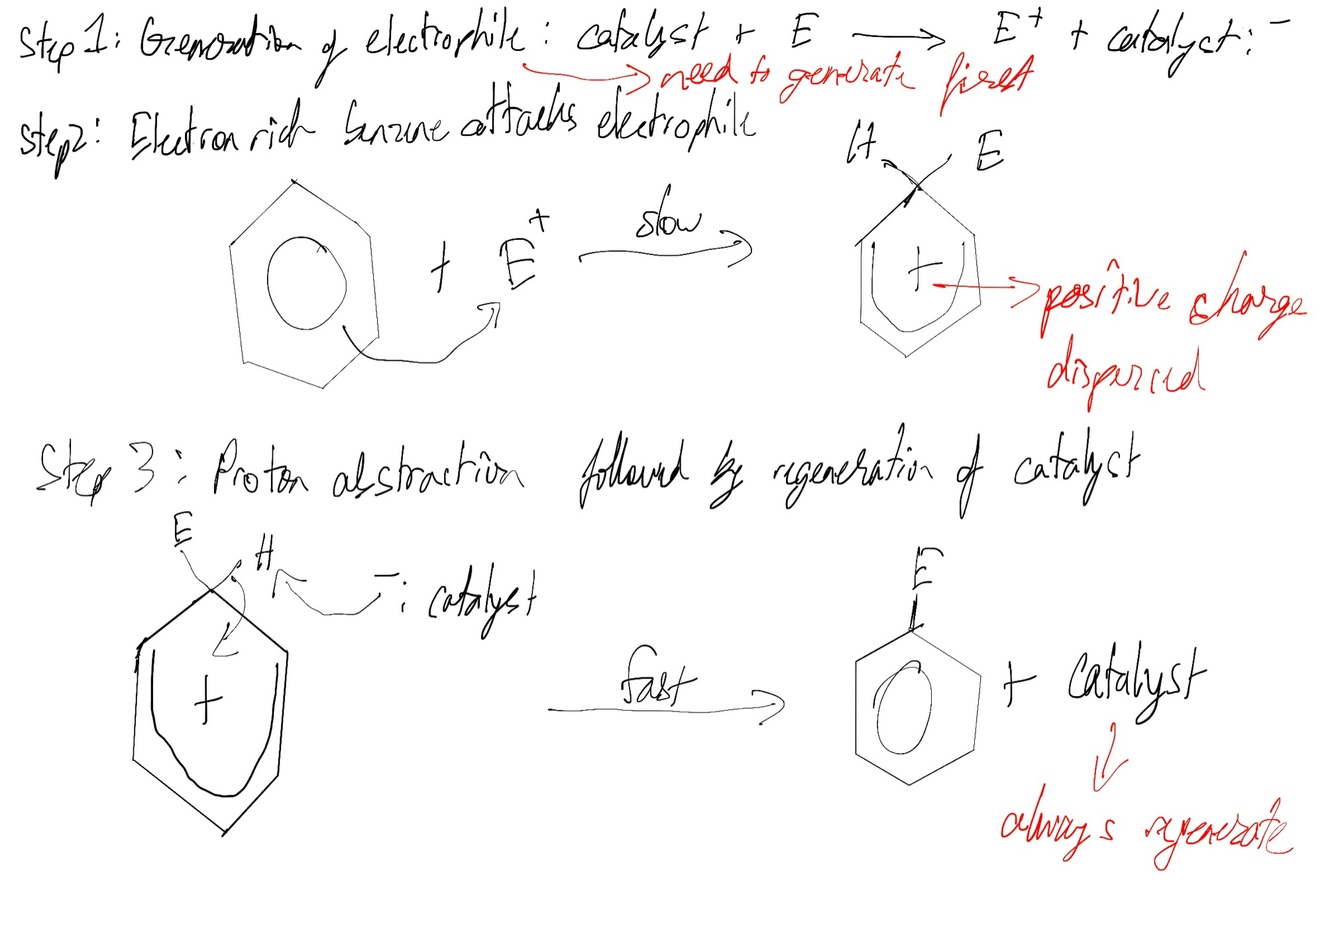 Step 1: Generation of electrophile: catalyst + E → E⁺ + catalyst:⁻
need to generate first
Step 2: Electron rich benzene attacks electrophile
H E
+ E⁺ slow +
positive charge
dispersed
Step 3: Proton abstraction followed by regeneration of catalyst
E H
⁻: catalyst
E
+ fast + catalyst
always regenerate